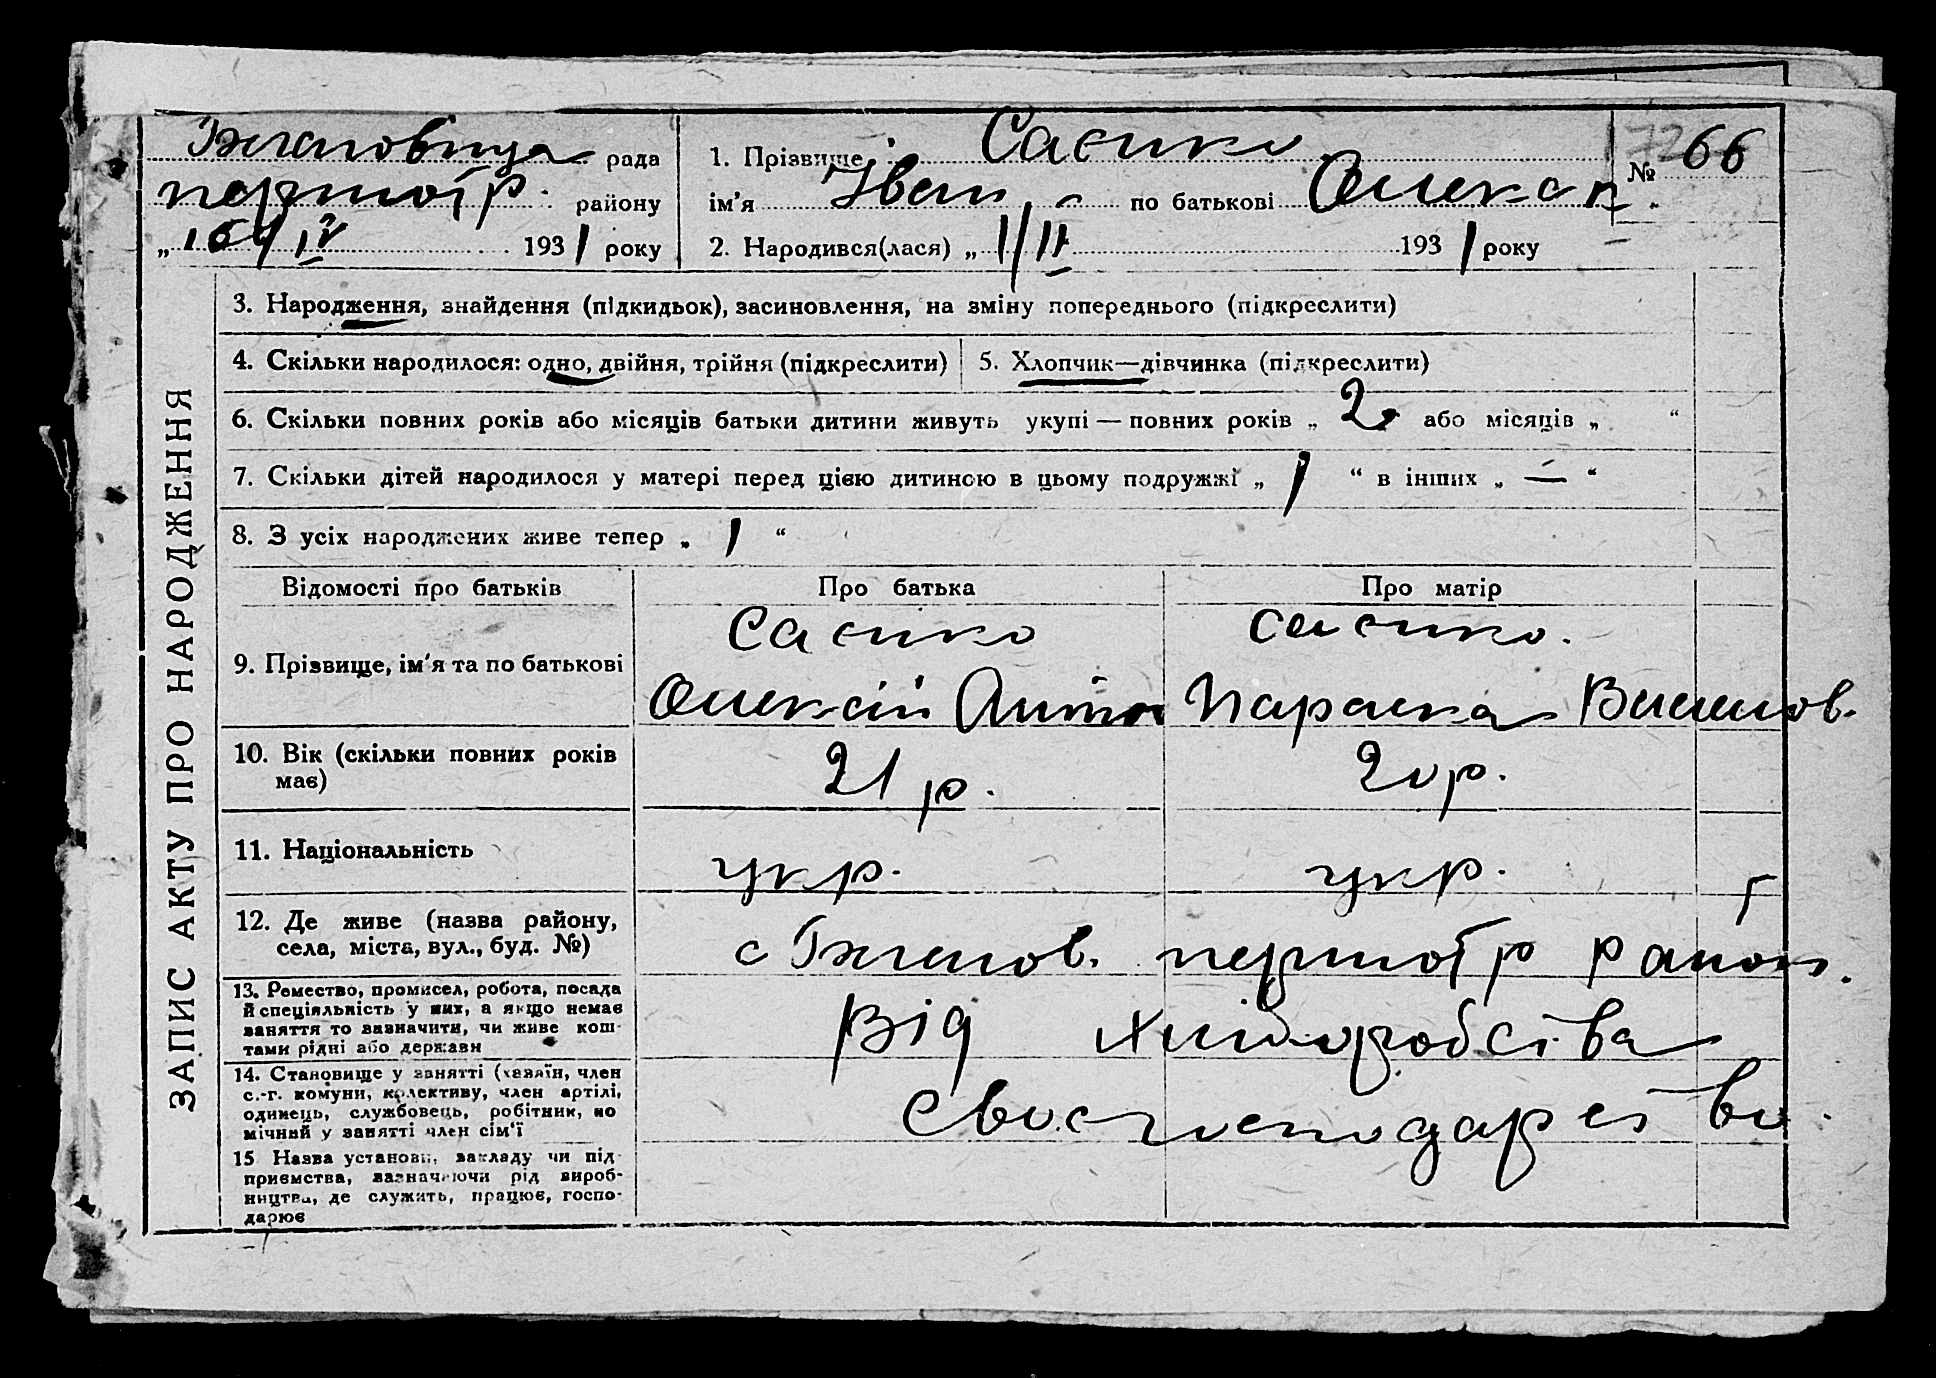 рада 1. Прізвище Саєнко № 66
району ім'я Іван по батькові Олексан
„ 16/IV 1931 року 2. Народився(лася) „ 1/II 1931 року
3. Народження, знайдення (підкидьок), засиновлення, на зміну попереднього (підкреслити)
4. Скільки народилося: одно, двійня, трійня (підкреслити) 5. Хлопчик—дівчинка (підкреслити)
6. Скільки повних років або місяців батьки дитини живуть укупі — повних років „ 2 або місяців „ “
7. Скільки дітей народилося у матері перед цією дитиною в цьому подружжі „ 1 “ в інших „ — “
8. З усіх народжених живе тепер „ 1 “
ЗАПИС АКТУ ПРО НАРОДЖЕННЯ
Відомості про батьків Про батька Про матір
Саєнко Саєнко.
9. Прізвище, ім'я та по батькові Олексій Антон Параска
10. Вік (скільки повних років 21 р. 20 р.
має)
11. Національність укр. укр.
12. Де живе (назва району,
села, міста, вул., буд. №) с район.
13. Ремество, промисел, робота, посада
й спеціяльність у них, а якщо немає
заняття то зазначити, чи живе кош-
тами рідні або держави
Від хліборобства
14. Становище у занятті (хазяїн, член
с.-г. комуни, колективу, член артілі,
одинець, службовець, робітник, по
мічний у занятті член сім'ї
Своє господарство.
15 Назва установи, закладу чи під-
приємства, зазначаючи рід вироб-
ництва, де служить, працює, госпо-
дарює